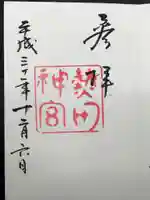 奉拝
熱田
神宮
平成二十二年十二月六日